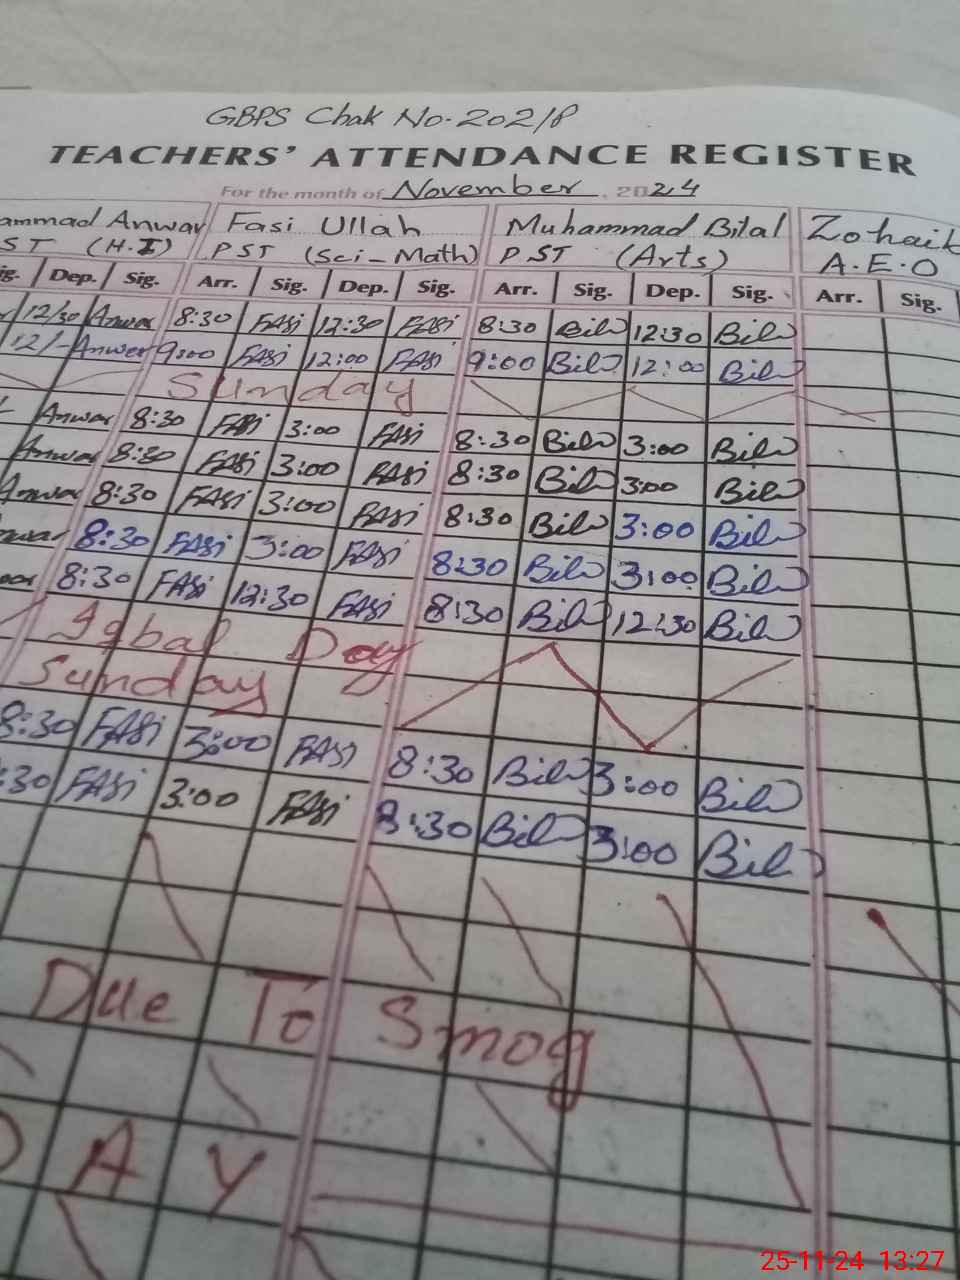 GBPS Chak No. 202/8
TEACHERS' ATTENDANCE REGISTER
For the month of November, 2024
ammad Anwar Fasi Ullah Muhammad Bilal Zohaib
ST (H.I) PST (Sci-Math) PST (Arts) A.E.O
ig. Dep. Sig. Arr. Sig. Dep. Sig. Arr. Sig. Dep. Sig. Arr. Sig.
12/30 Anwar 8:30 FASi 12:30 FASi 8:30 Bil 12:30 Bil
12/- Anwar 9:00 FASi 12:00 FASi 9:00 Bil 12:00 Bil
Sunday
Anwar 8:30 FASi 3:00 FASi 8:30 Bil 3:00 Bil
Anwar 8:30 FASi 3:00 FASi 8:30 Bil 3:00 Bil
Anwar 8:30 FASi 3:00 FASi 8:30 Bil 3:00 Bil
nwar 8:30 FASi 3:00 FASi 8:30 Bil 3:00 Bil
8:30 FASi 12:30 FASi 8:30 Bil 12:30 Bil
Iqbal Day
Sunday
8:30 FASi 3:00 FASi 8:30 Bil 3:00 Bil
:30 FASi 3:00 FASi 8:30 Bil 3:00 Bil
Due To Smog
D A Y
25-11-24 13:27